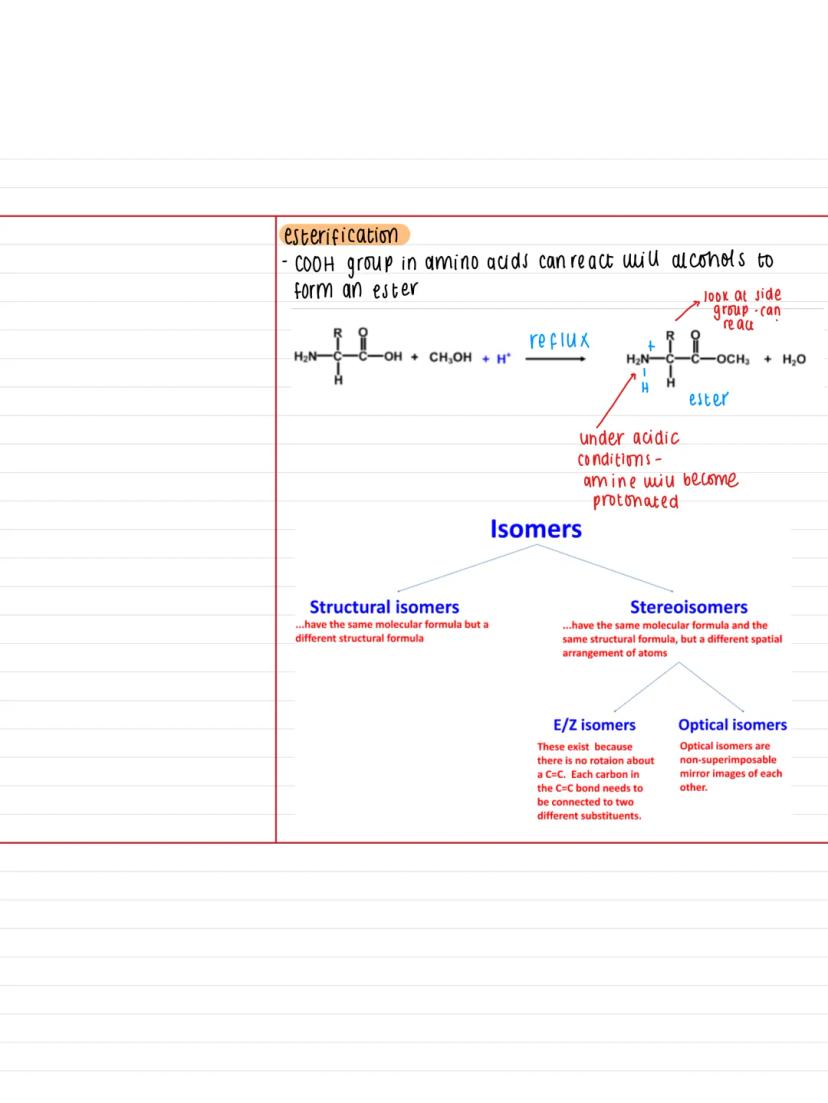 esterification
- COOH group in amino acids can react will alcohols to
form an ester
look at side
group - can
react
R O
H₂N—C—C—OH + CH₃OH + H⁺
H
reflux
+ R O
H₂N—C—C—OCH₃ + H₂O
H H
ester
under acidic
conditions -
amine will become
protonated
Isomers
Structural isomers
...have the same molecular formula but a
different structural formula
Stereoisomers
...have the same molecular formula and the
same structural formula, but a different spatial
arrangement of atoms
E/Z isomers
These exist because
there is no rotaion about
a C=C. Each carbon in
the C=C bond needs to
be connected to two
different substituents.
Optical isomers
Optical isomers are
non-superimposable
mirror images of each
other.